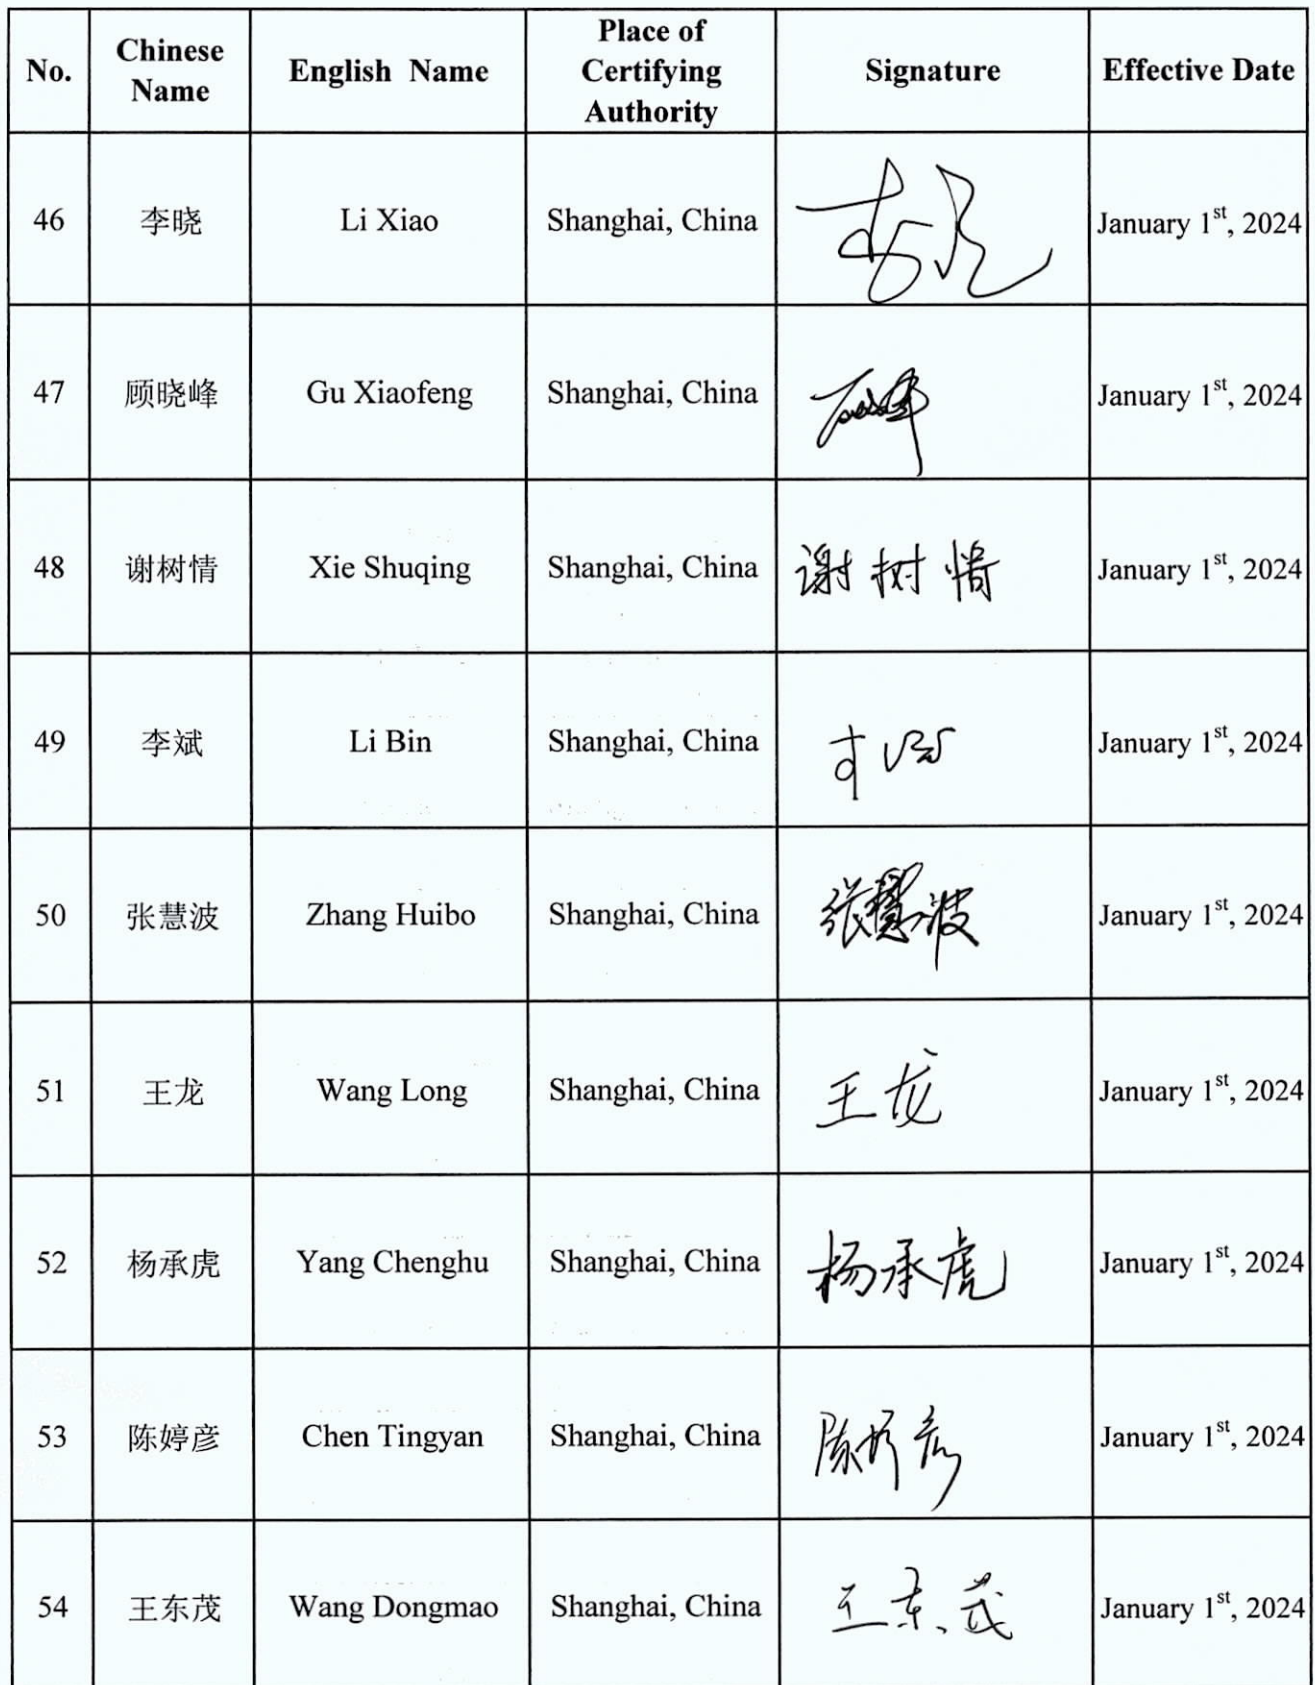 No. Chinese Name English Name Place of Certifying Authority Signature Effective Date
46 李晓 Li Xiao Shanghai, China 李晓 January 1st, 2024
47 顾晓峰 Gu Xiaofeng Shanghai, China January 1st, 2024
48 谢树情 Xie Shuqing Shanghai, China 谢树情 January 1st, 2024
49 李斌 Li Bin Shanghai, China January 1st, 2024
50 张慧波 Zhang Huibo Shanghai, China 张慧波 January 1st, 2024
51 王龙 Wang Long Shanghai, China 王龙 January 1st, 2024
52 杨承虎 Yang Chenghu Shanghai, China 杨承虎 January 1st, 2024
53 陈婷彦 Chen Tingyan Shanghai, China 陈婷彦 January 1st, 2024
54 王东茂 Wang Dongmao Shanghai, China 王东茂 January 1st, 2024